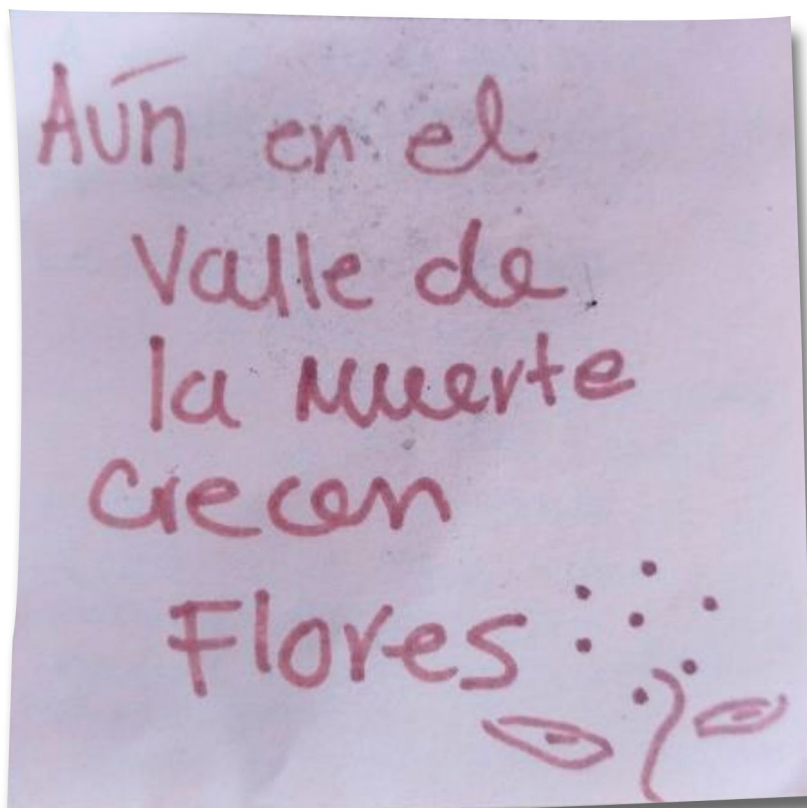 Aún en el
Valle de
la muerte
crecen
Flores